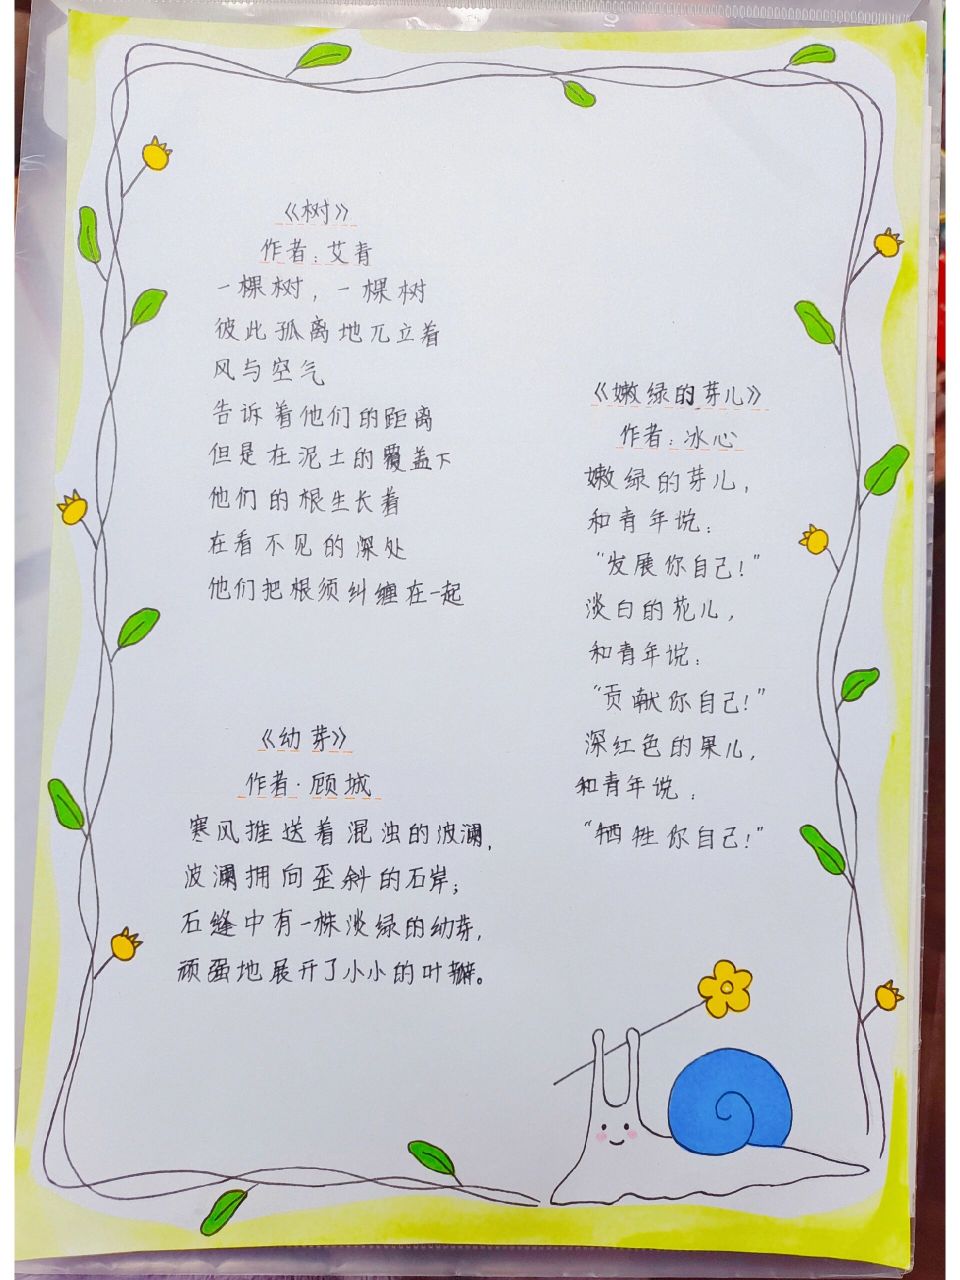 《树》
作者:艾青
一棵树，一棵树
彼此孤离地兀立着
风与空气
告诉着他们的距离
但是在泥土的覆盖下
他们的根生长着
在看不见的深处
他们把根须纠缠在一起
《幼芽》
作者·顾城
寒风推送着混浊的波澜，
波澜拥向歪斜的石岸；
石缝中有一株淡绿的幼芽，
顽强地展开了小小的叶瓣。
《嫩绿的芽儿》
作者:冰心
嫩绿的芽儿，
和青年说：
“发展你自己！”
淡白的花儿，
和青年说：
“贡献你自己！”
深红色的果儿，
和青年说：
“牺牲你自己！”